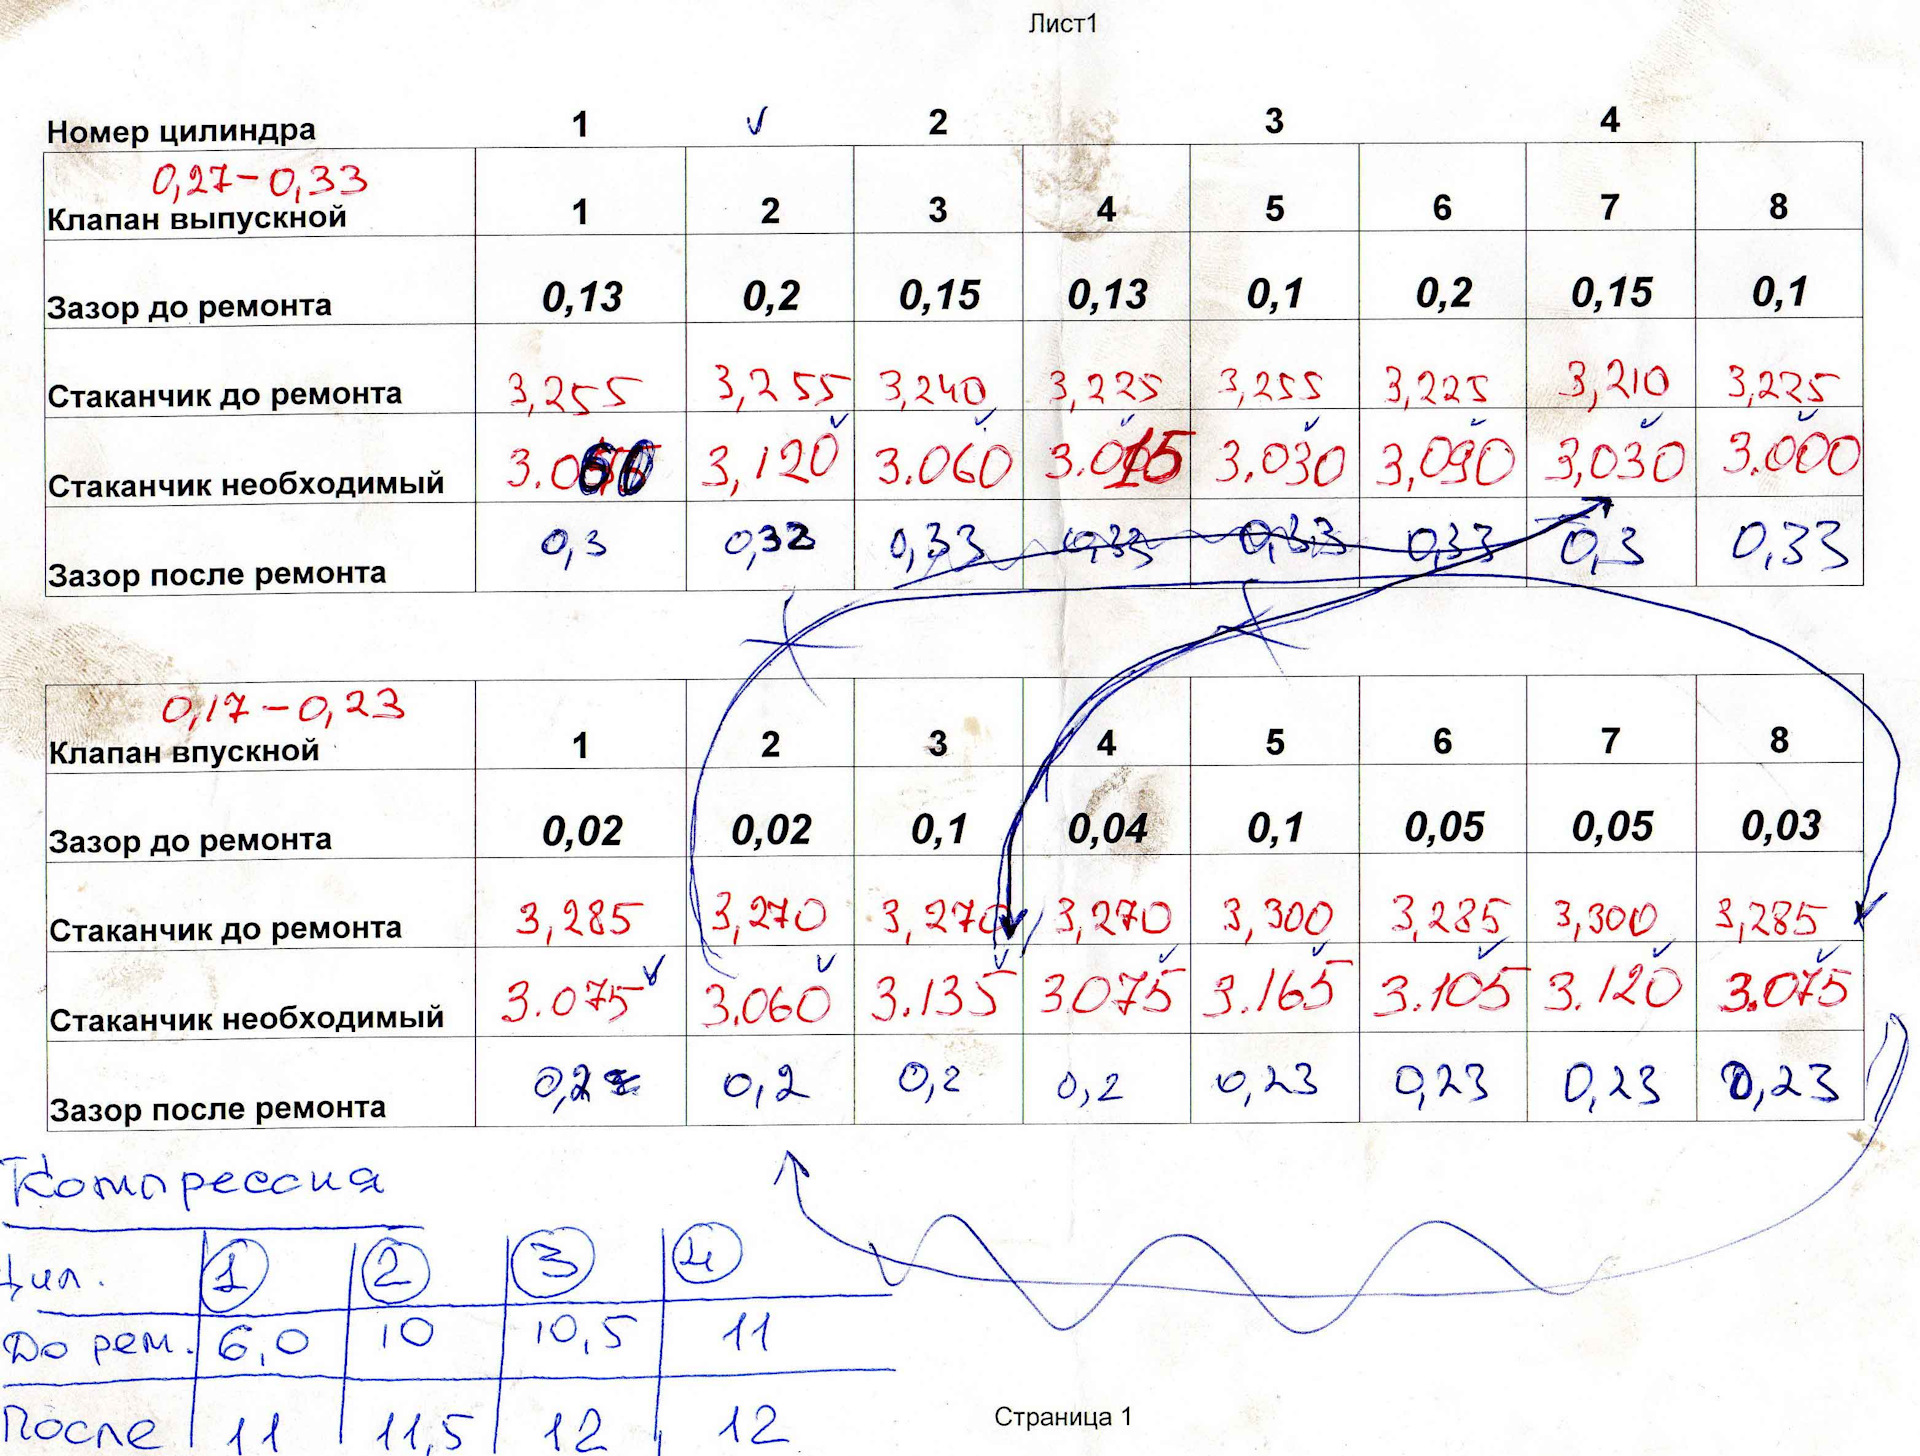 Лист1
Номер цилиндра 1 2 3 4
0,27-0,33
Клапан выпускной 1 2 3 4 5 6 7 8
Зазор до ремонта 0,13 0,2 0,15 0,13 0,1 0,2 0,15 0,1
Стаканчик до ремонта 3,255 3,255 3,240 3,225 3,255 3,225 3,210 3,225
Стаканчик необходимый 3.060 3,120 3.060 3.015 3.030 3,090 3,030 3.000
Зазор после ремонта 0,3 0,32 0,33 0,33 0,33 0,33 0,3 0,33
0,17-0,23
Клапан впускной 1 2 3 4 5 6 7 8
Зазор до ремонта 0,02 0,02 0,1 0,04 0,1 0,05 0,05 0,03
Стаканчик до ремонта 3,285 3,270 3,270 3,270 3,300 3,285 3,300 3,285
Стаканчик необходимый 3.075 3.060 3.135 3.075 3.165 3.105 3.120 3.075
Зазор после ремонта 0,2 0,2 0,2 0,2 0,23 0,23 0,23 0,23
Компрессия
Цил. 1 2 3 4
До рем. 6,0 10 10,5 11
После 11 11,5 12 12
Страница 1